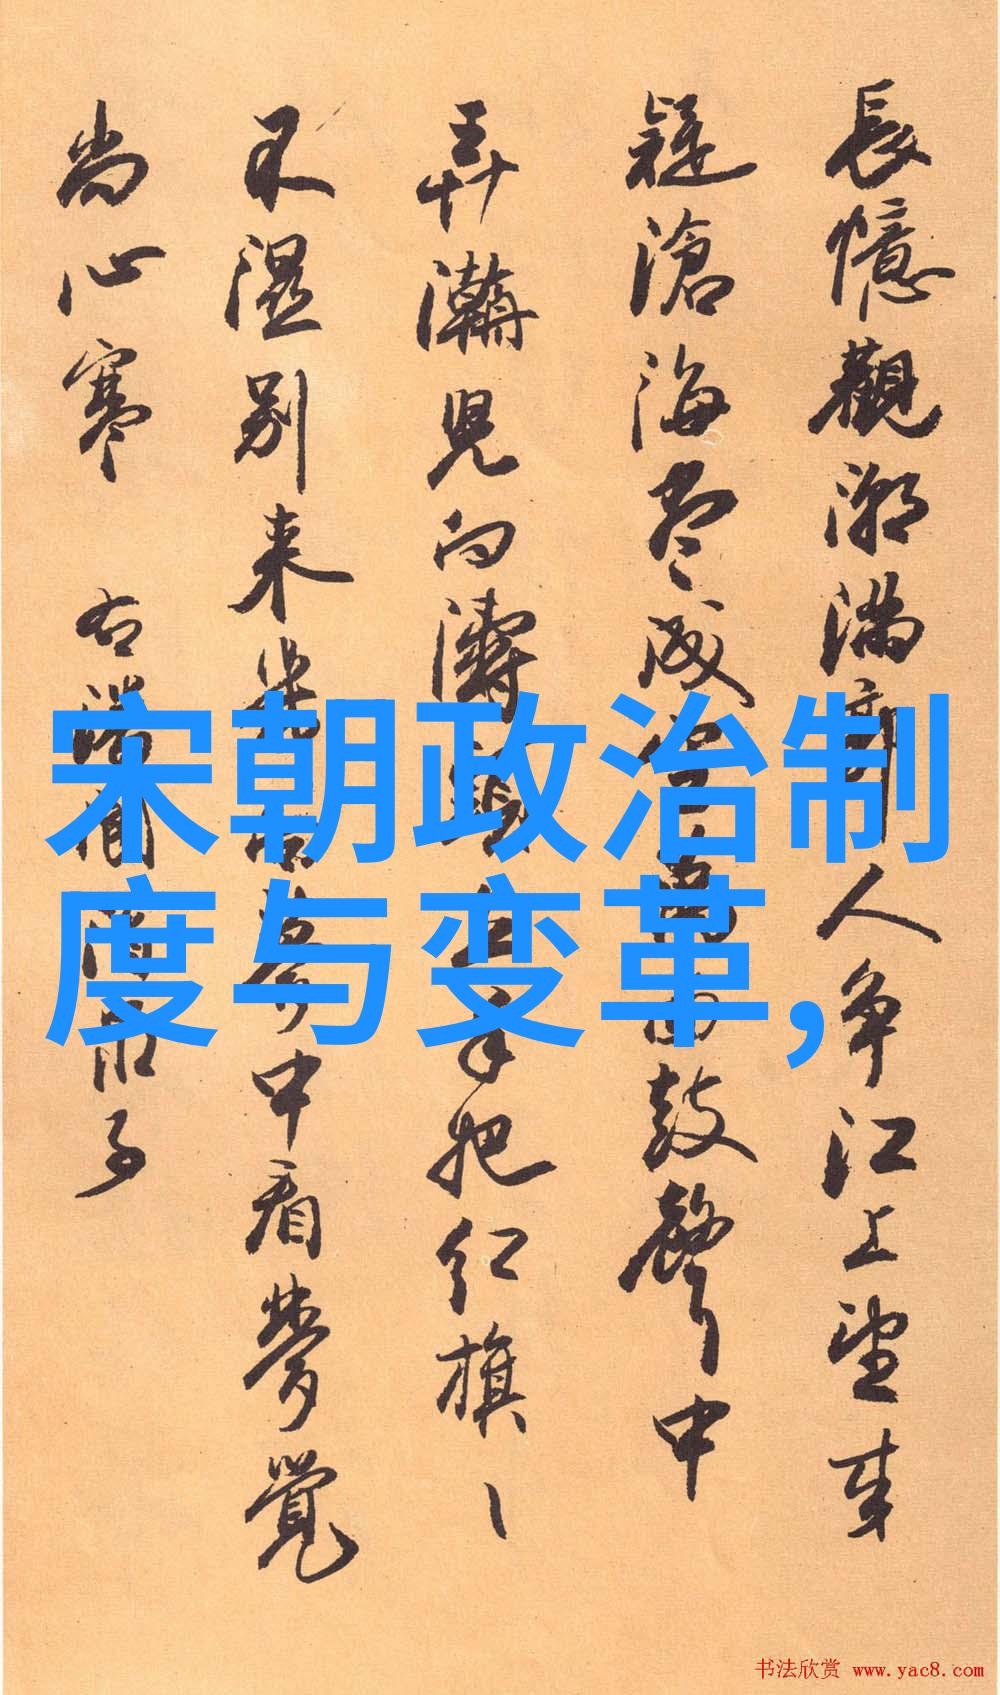 長憶觀潮滿郭人争江上望来
疑滄海尽成空萬面鼓聲中
弄濤児向濤頭立手把紅旗〻
不濕别来幾向夢中看夢覺
尚心寒 右潘閬酒泉子
宋朝政治制
度与变革,
书法欣赏 www.yac8.com